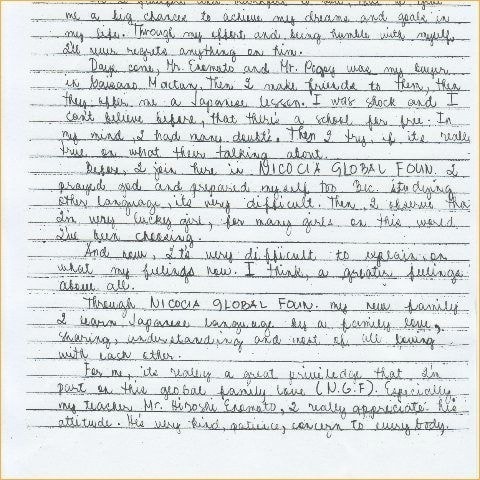 me a big chance to achieve my dreams and goals in
my life. Through my effort and being humble with myself
I'll never regrets anything on him.
Days come, Mr. Enomoto and Mr. Popoy was my buyer
in Gaisano Mactan, then I make friends to them, then
they offer me a Japanese lesson. I was shock and I
can't believe before, that there's a school for free. In
my mind, I had many doubts. Then I try, if it's really
true on what their talking about.
Before, I join here in NICOCIA GLOBAL FOUN. I
prayed god and prepared myself too b/c. studying
other language, its very difficult. Then I observe that
I'm very lucky girl, for many girls on this world
I've been choosing.
And now, It's very difficult to explain on
what my feelings now. I think, a greater feelings
above all.
Through NICOCIA GLOBAL FOUN. my new family
I learn Japanese language by a family love,
sharing, understanding and most of all loving
with each other.
For me, its really a great priviledge that I'm
part on this global family love (N.G.F). Especially
my teacher Mr. Hiroshi Enomoto, I really appreciate his
attitude. His very kind, patience, concern to everybody.